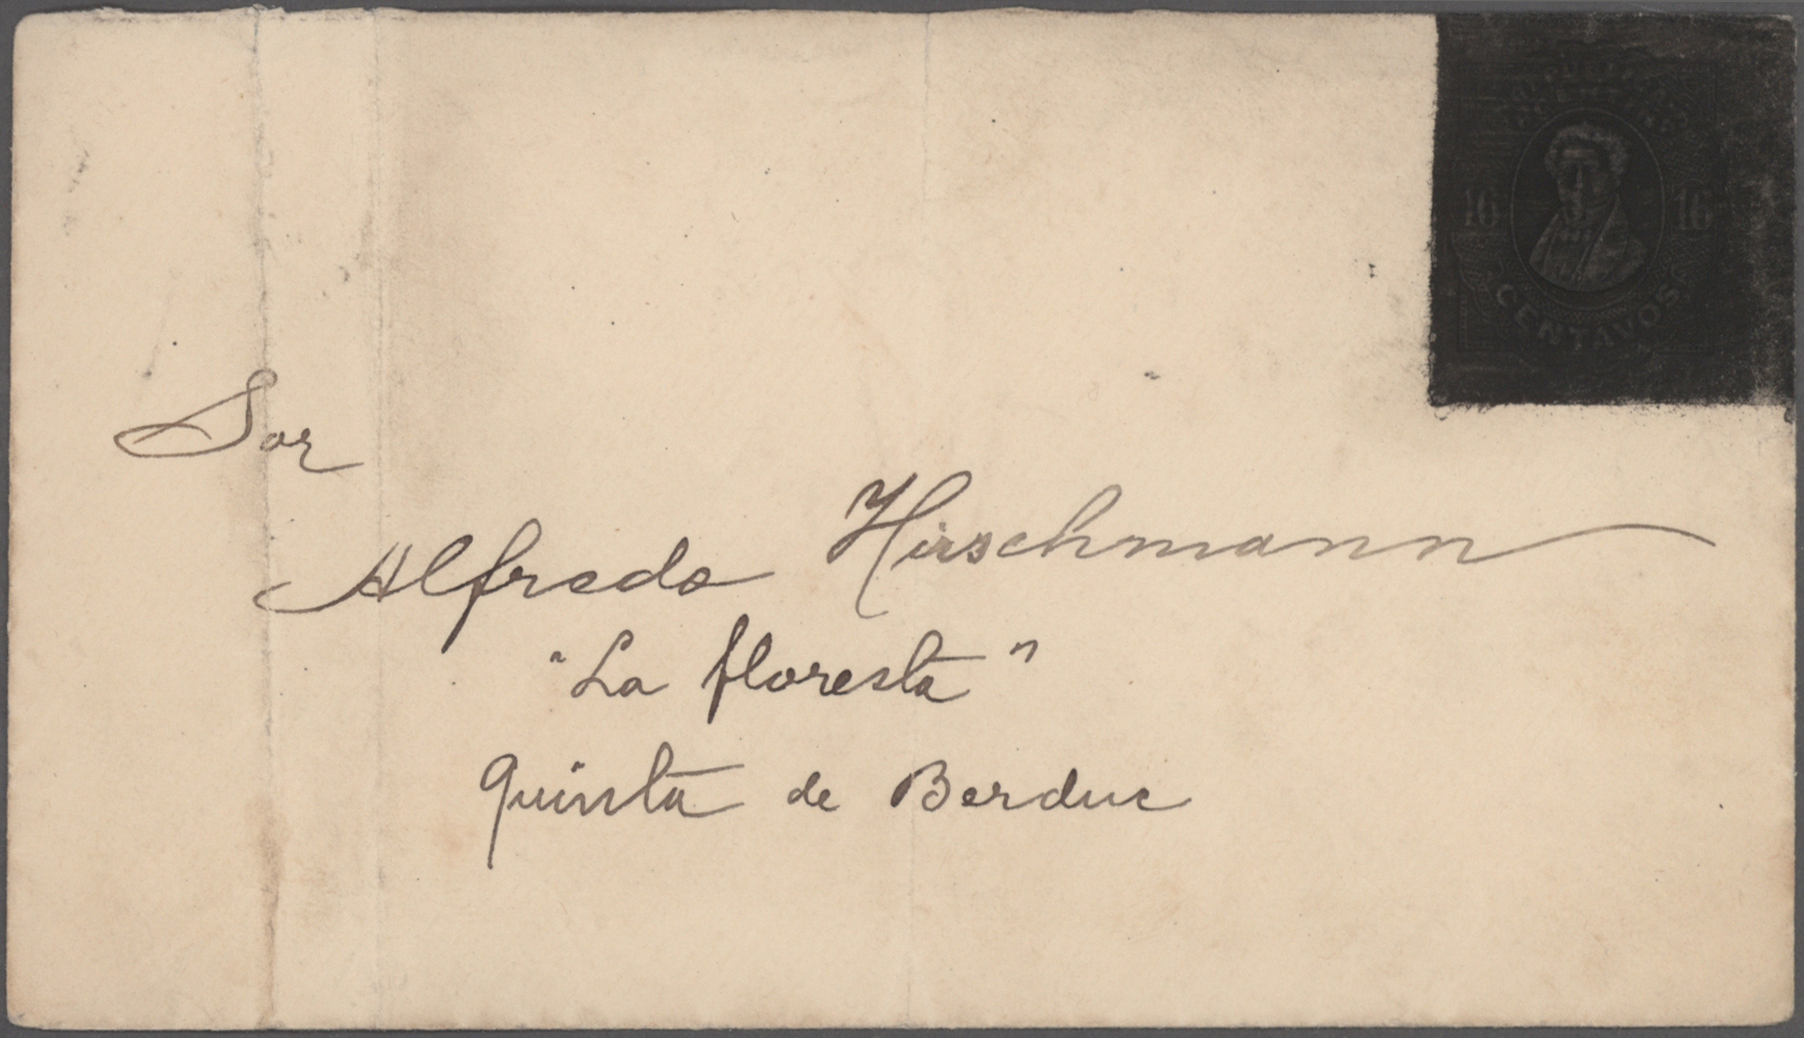 REPUBLICA
ARGENTINA
16 16
CENTAVOS
Sor
Alfredo Hirschmann
"La floresta"
Quinta de Berduc